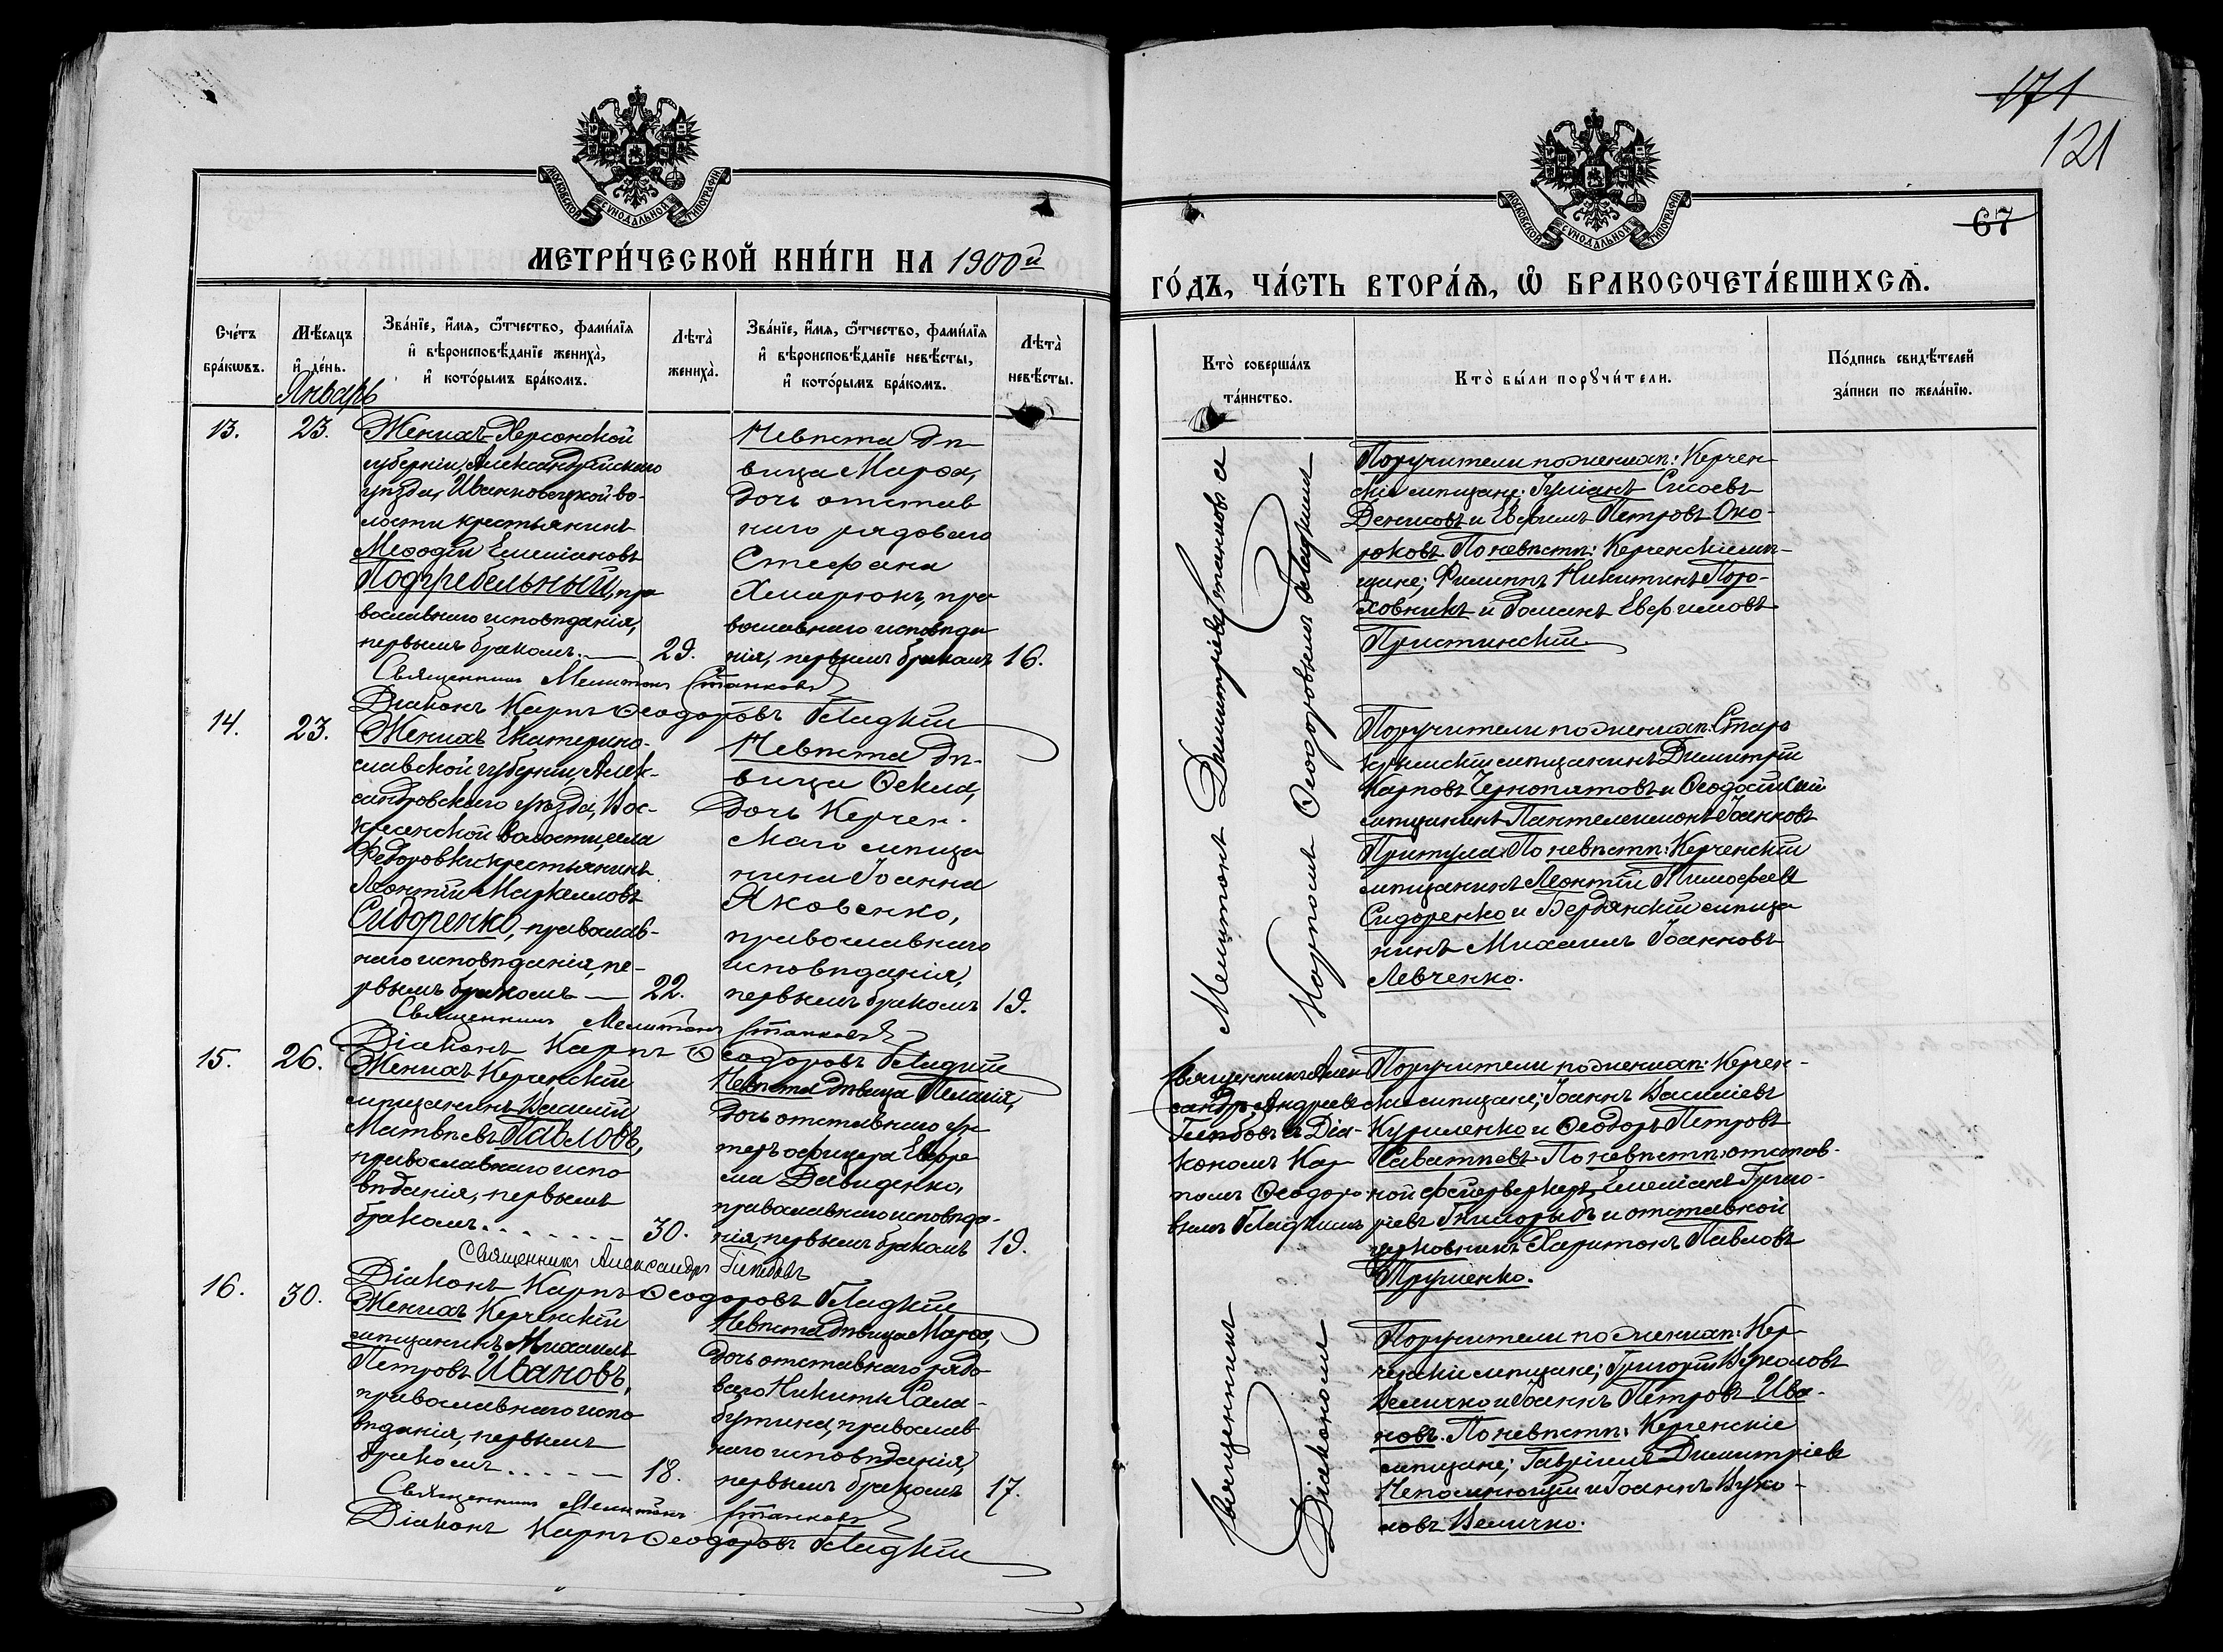 171
121
67
МОСКОВСКОЙ СѴНОДАЛЬНОЙ ТИПОГРАФІИ
МЕТРИ́ЧЕСКОЙ КНИ́ГИ НА 1900й
Сче́тъ бра́кѡвъ.
Мѣ́сяцъ и҆ де́нь.
Зва́нїе, и҆́мя, ѻ҆́тчество, фами́лїя
и҆ вѣроисповѣ́данїе жениха̀,
и҆ кото́рымъ бра́комъ.
Лѣта̀ жениха̀.
Зва́нїе, и҆́мя, ѻ҆́тчество, фами́лїя
и҆ вѣроисповѣ́данїе невѣ́сты,
и҆ кото́рымъ бра́комъ.
Лѣта̀ невѣ́сты.
Январь
13.
23.
Женихъ Херсонской
губерніи, Александрійскаго
уѣзда, Ивановецкой во-
лости крестьянинъ
Меѳодій Емеліановъ
Подгребельный, пра
вославнаго исповѣданія,
первымъ бракомъ. —
29.
Невѣста дѣ-
вица Марѳа,
дочь отстав
наго рядоваго
Стефана
Хмарюкъ, пра
вославнаго исповѣда
нія, первымъ бракомъ
16.
Священникъ Мелитонъ Станковъ
Діаконъ Карпъ Ѳеодоровъ Гладкій
14.
23.
Женихъ Екатерино-
славской губерніи, Алек-
сандровскаго уѣзда, Вос-
кресенской волости, села
Федоровки крестьянинъ
Леонтій Маркелловъ
Сидоренко, православ-
наго исповѣданія, пе-
рвымъ бракомъ —
22.
Невѣста дѣ-
вица Ѳекла,
дочь Керчен-
скаго мѣща
нина Іоанна
Яковенко,
православнаго
исповѣданія,
первымъ бракомъ
19.
Священникъ Мелитонъ Станковъ
Діаконъ Карпъ Ѳеодоровъ Гладкій
15.
26.
Женихъ Керченскій
мѣщанинъ Василій
Матвѣевъ Павловъ,
православнаго испо
вѣданія, первымъ
бракомъ.
30.
Невѣста дѣвица Пелагія,
дочь отставнаго ун
теръ офицера Ефре
ма Давиденко,
православнаго исповѣда-
нія, первымъ бракомъ
19.
Священникъ Александръ Глѣбовъ
Діаконъ Карпъ Ѳеодоровъ Гладкій
16.
30.
Женихъ Керченскій
мѣщанинъ Михаилъ
Петровъ Ивановъ,
православнаго испо
вѣданія, первымъ
бракомъ.
18.
Невѣста дѣвица Марѳа,
дочь отставнаго рядо
ваго Никиты Сала-
бутина, православ-
наго исповѣданія,
первымъ бракомъ
17.
Священникъ Мелитонъ Станковъ
Діаконъ Карпъ Ѳеодоровъ Гладкій
МОСКОВСКОЙ СѴНОДАЛЬНОЙ ТИПОГРАФІИ
ГО́ДЪ, ЧА́СТЬ ВТОРА́Я, Ѡ҆ БРАКОСОЧЕТА́ВШИХСЯ.
Кто̀ соверша́лъ та́инство.
Кто̀ бы́ли порꙋчи́тели.
По́дпись свидѣ́телей за́писи по жела́нїю.
Священникъ Мелитонъ Димитріевъ Станковъ съ
Діакономъ Карпомъ Ѳеодоровымъ Гладкимъ
Поручители по женихѣ: Керчен
скіе мѣщане; Іуліанъ Сисоевъ
Денисовъ и Евфимъ Петровъ Око-
роковъ. По невѣстѣ: Керченскіе мѣ-
щане; Филиппъ Никитинъ Поро-
ховникъ и Романъ Евфимовъ
Пристинскій.
Поручители по женихѣ: Старо
крымскій мѣщанинъ Димитрій
Карповъ Чернопятовъ и Ѳеодосійскій
мѣщанинъ Пантелеимонъ Іоанновъ
Притула. По невѣстѣ: Керченскій
мѣщанинъ Леонтій Тимоѳеевъ
Сидоренко и Бердянскій мѣща
нинъ Михаилъ Іоанновъ
Левченко.
Священникъ Алек
сандръ Андреевъ
Глѣбовъ съ Діа-
кономъ Кар
помъ Ѳеодоро
вымъ Гладкимъ
Поручители по женихѣ: Керчен-
скіе мѣщане; Іоаннъ Василіевъ
Куриленко и Ѳеодоръ Петровъ
Саватѣевъ. По невѣстѣ: отстав-
ной фейерверкеръ Емеліанъ Григо-
ріевъ Гнилорыбъ и отставной
церковникъ Харитонъ Павловъ
Труменко.
Поручители по женихѣ: Кер-
ченскіе мѣщане; Григорій Вуколовъ
Величко и Іоаннъ Петровъ Ива-
новъ. По невѣстѣ: Керченскіе
мѣщане; Гавріилъ Димитріевъ
Непомнющій и Іоаннъ Вуко-
ловъ Величко.